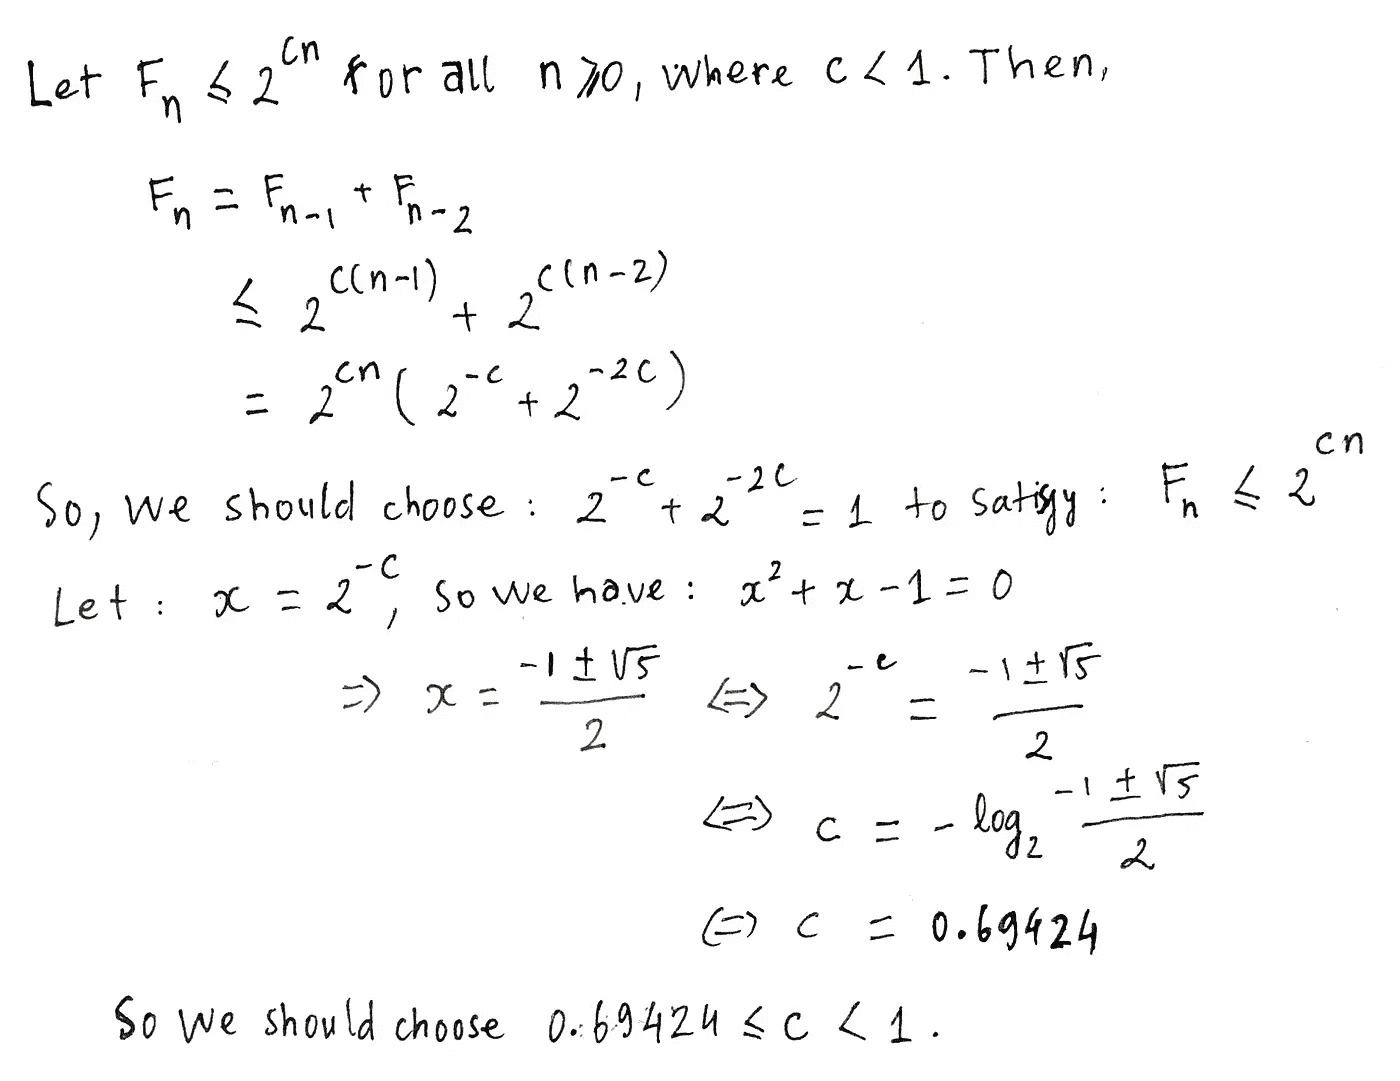 Let Fₙ ≤ 2^(cn) for all n ≥ 0, where c < 1. Then,
Fₙ = Fₙ₋₁ + Fₙ₋₂
≤ 2^(c(n-1)) + 2^(c(n-2))
= 2^(cn) ( 2^(-c) + 2^(-2c) )
So, we should choose : 2^(-c) + 2^(-2c) = 1 to satisfy : Fₙ ≤ 2^(cn)
Let : x = 2^(-c), so we have : x² + x - 1 = 0
⇒ x = (-1 ± √5)/2 ⇔ 2^(-c) = (-1 ± √5)/2
⇔ c = - log₂ (-1 ± √5)/2
⇔ c = 0.69424
So we should choose 0.69424 ≤ c < 1.